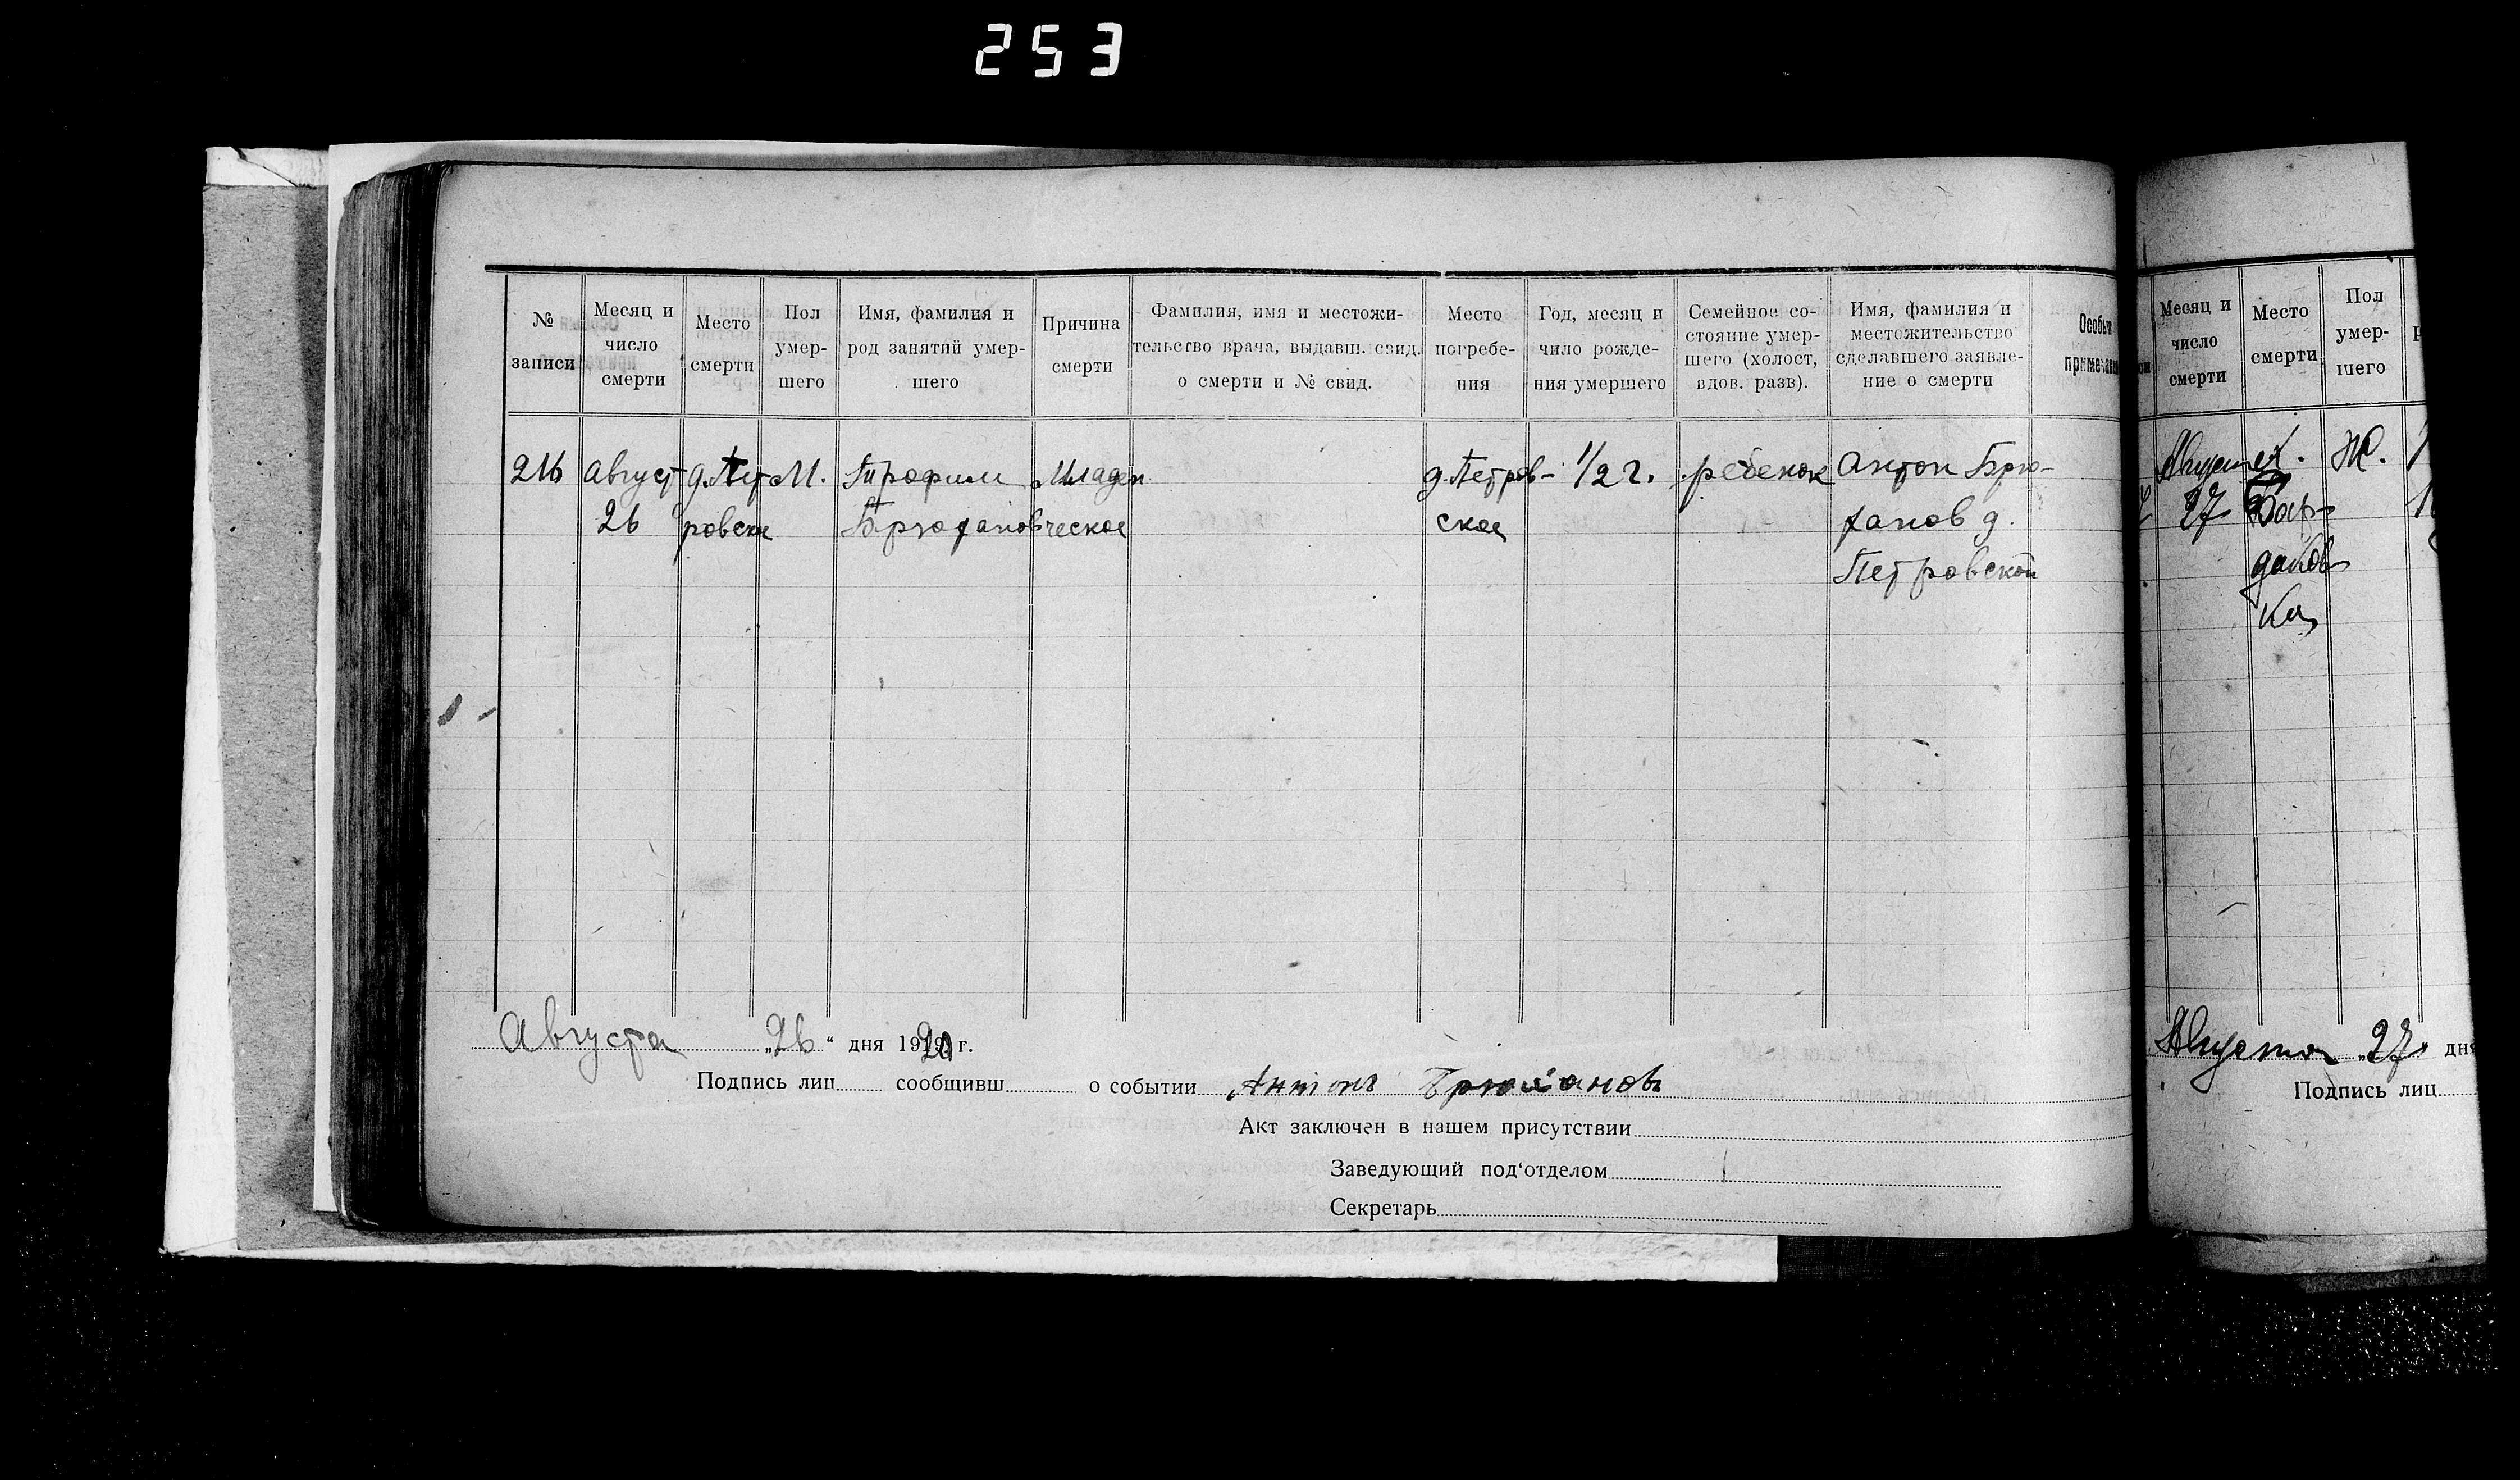 253
№ записи
Месяц и число смерти
Место смерти
Пол умер-шего
Имя, фамилия и род занятий умер-шего
Причина смерти
Фамилия, имя и местожи-тельство врача, выдавш. свид. о смерти и № свид.
Место погребе-ния
Год, месяц и чило рожде-ния умершего
Семейное со-стояние умер-шего (холост, вдов. разв).
Имя, фамилия и местожительство сделавшего заявле-ние о смерти
Особые
216
август
26
д. Пет
ровски
М.
Трофим
Брюханов
Младен
ческое
д. Петров-
ское
1/2 г.
ребенок
Антон Брю-
ханов д.
Петровской
Августа „26“ дня 1920 г.
Подпись лиц сообщивш о событии Антонъ Брюхановъ
Акт заключен в нашем присутствии
Заведующий под‘отделом
Секретарь
Месяц и число смерти
Место смерти
Пол умер-шего
Август
27
Ж.
Августа „27“ дня
Подпись лиц